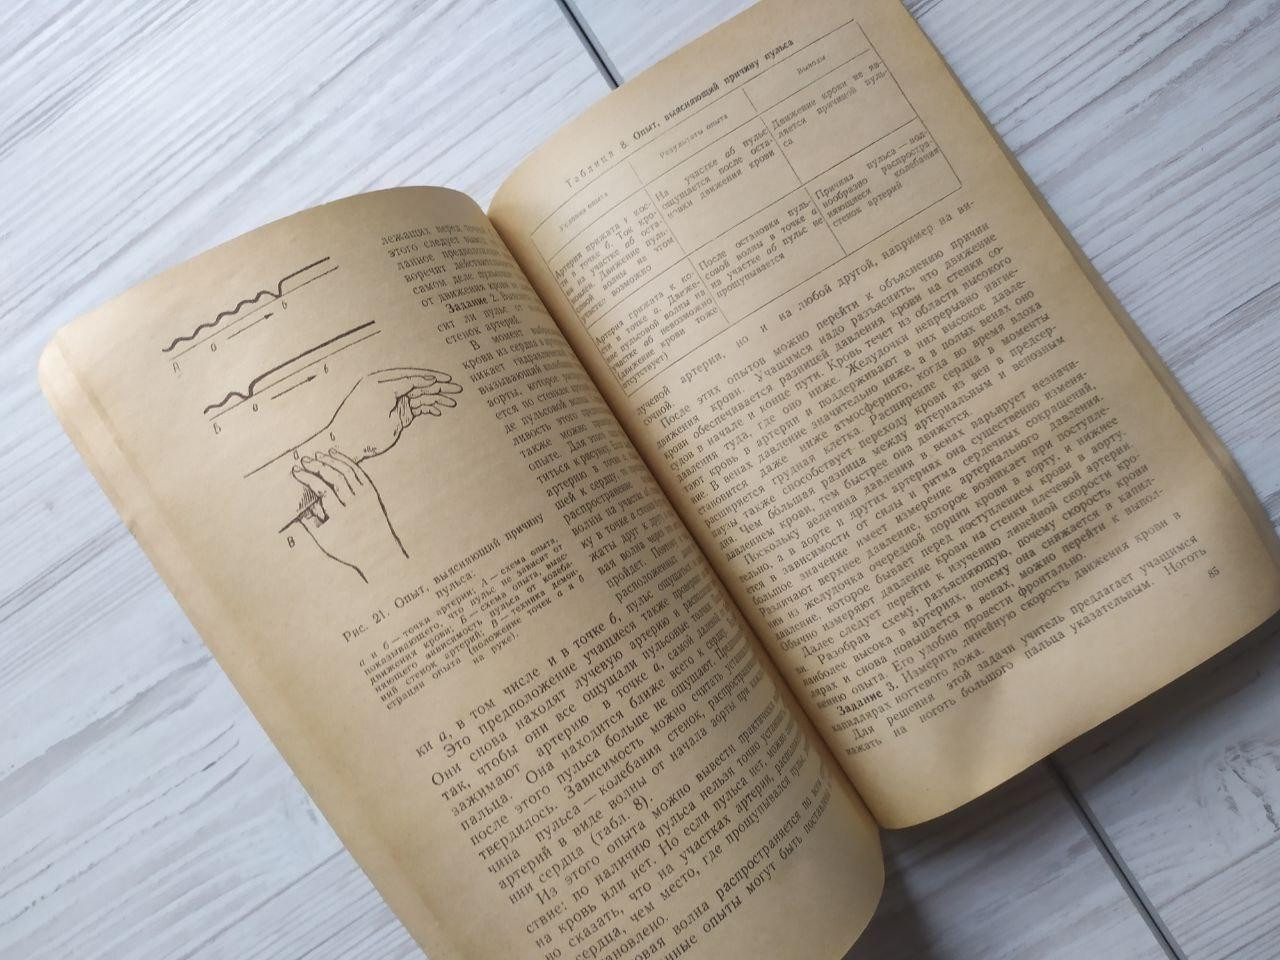 лежащих перед точкой
этого следует вывод
данное предположение
воречит действительн
самом деле пульсова
от движения крови не
Задание 2. Выясн
сит ли пульс от
стенок артерий.
В момент выброс
крови из сердца в аорт
никает гидравлически
вызывающий колебан
аорты, которое распр
ется по стенкам артери
де пульсовой волны
ливость этого предпо
также можно провери
опыте. Для этого
титься к рисунку. Если
артерию в точке а
шей к сердцу, то
распространение
волны на участке
ку в точке а стенки
жаты друг к другу
вая волна через
пройдет. Потому
расположенных
А
а
б
Б
а
б
а
б
В
Рис. 21. Опыт, выясняющий причину
пульса:
а и б — точки артерии; А — схема опыта,
показывающего, что пульс не зависит от
движения крови; Б — схема опыта, выяс-
няющего зависимость пульса от колеба-
ний стенок артерий; В — техника демон-
страции опыта (положение точек а и б
на руке).
ки а, в том числе и в точке б, пульс ощущат
Это предположение учащиеся также проверяют
Они снова находят лучевую артерию и располаг
так, чтобы они все ощущали пульсовые толчки
зажимают артерию в точке а, самой далекой
пальца. Она находится ближе всего к сердцу,
после этого пульса больше не ощущают. Предп
твердилось. Зависимость можно считать установ
чина пульса — колебания стенок, распространяю
артерий в виде волны от начала аорты при каждо
нии сердца (табл. 8).
Из этого опыта можно вывести практически
ствие: по наличию пульса нельзя точно установи
на кровь или нет. Но если пульса нет, можно
но сказать, что на участках артерии, располож
сердца, чем место, где прощупывался пульс,
тановлено.
овая волна распространяется по всем
анные опыты могут быть поставлены
Таблица 8. Опыт, выясняющий причину пульса
Условия опыта
Результаты опыта
Выводы
Артерия прижата к кос-
ти в точке б. Ток кро-
ви на участке аб оста-
новлен. Движение пуль-
совой волны на этом
участке возможно
На участке аб пульс
ощущается после оста-
новки движения крови
Движение крови не яв-
ляется причиной пуль-
са
Артерия прижата к ко-
сти в точке а. Движе-
ние пульсовой волны на
участке аб невозможно
(движение крови тоже
отсутствует)
После остановки пуль-
совой волны в точке а
на участке аб пульс не
прощупывается
Причина пульса — вол-
нообразно распростра-
няющиеся колебания
стенок артерий
лучевой артерии, но и на любой другой, например на ви-
сочной.
После этих опытов можно перейти к объяснению причин
движения крови. Учащимся надо разъяснить, что движение
крови обеспечивается разницей давления крови на стенки со-
судов в начале и конце пути. Кровь течет из области высокого
давления туда, где оно ниже. Желудочки непрерывно нагне-
тают кровь в артерии и поддерживают в них высокое давле-
ние. В венах давление значительно ниже, а в полых венах оно
становится даже ниже атмосферного, когда во время вдоха
расширяется грудная клетка. Расширение сердца в моменты
паузы также способствует переходу крови из вен в предсер-
дия. Чем бóльшая разница между артериальным и венозным
давлением крови, тем быстрее она движется.
Поскольку величина давления в венах варьирует незначи-
тельно, а в аорте и других артериях она существенно изменя-
ется в зависимости от силы и ритма сердечных сокращений,
большое значение имеет измерение артериального давления.
Различают верхнее давление, которое возникает при поступле-
нии из желудочка очередной порции крови в аорту, и нижнее
давление, которое бывает перед поступлением крови в аорту.
Обычно измеряют давление крови на стенки плечевой артерии.
Далее следует перейти к изучению линейной скорости кро-
ви. Разобрав схему, разъясняющую, почему скорость крови
наиболее высока в артериях, почему она снижается в капил-
лярах и снова повышается в венах, можно перейти к выпол-
нению опыта. Его удобно провести фронтально.
Задание 3. Измерить линейную скорость движения крови в
капиллярах ногтевого ложа.
Для решения этой задачи учитель предлагает учащимся
нажать на ноготь большого пальца указательным. Ноготь
85